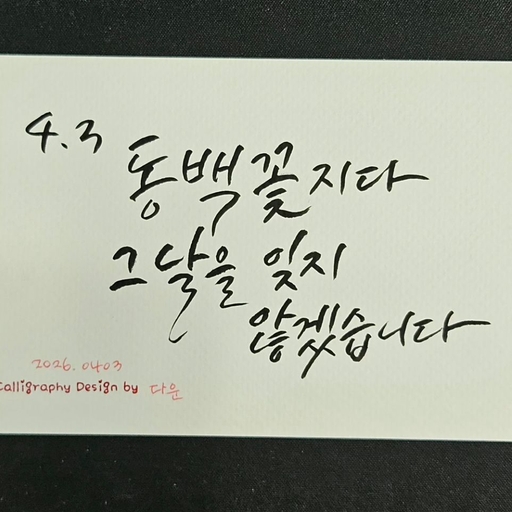 4.3
동백꽃 지다
그날을 잊지
않겠습니다
2026.0403
Calligraphy Design by 다운